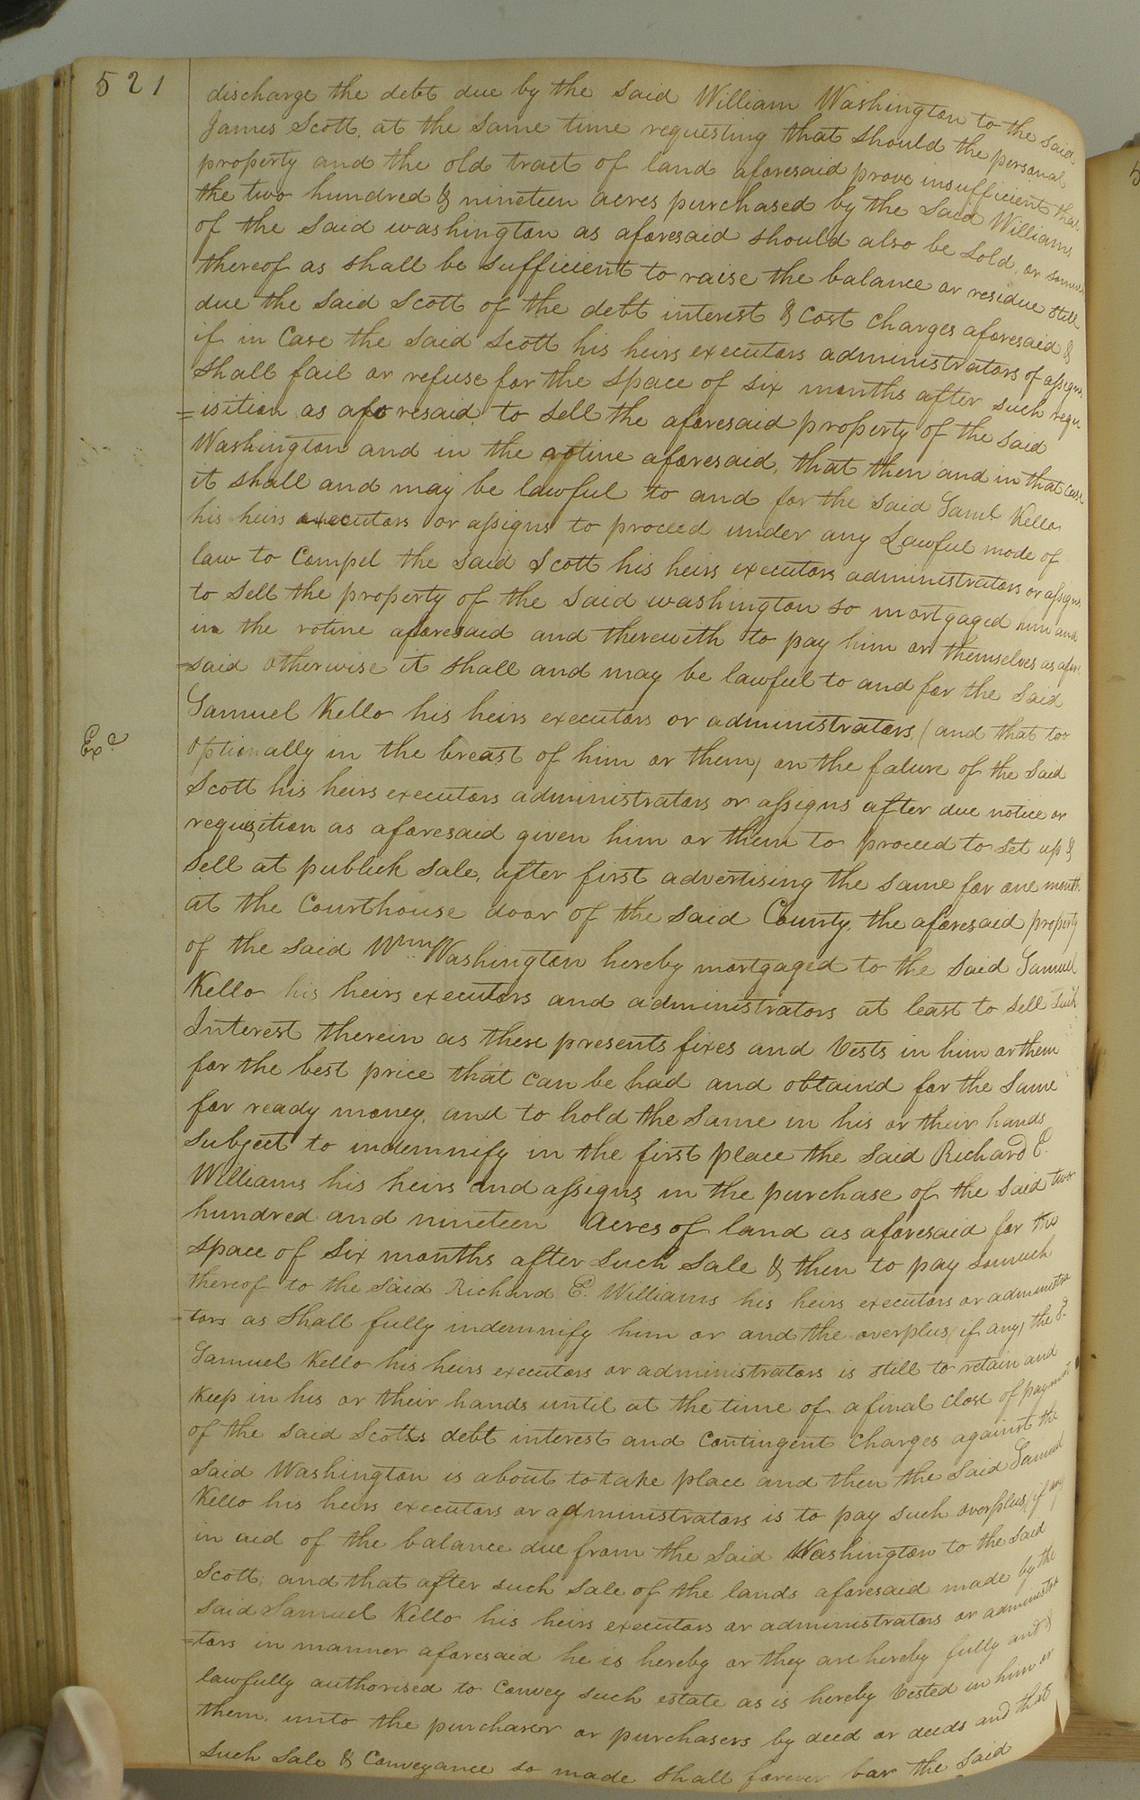 521
discharge the debt due by the said William Washington to the said
James Scott, at the same time requesting that should the personal
property and the old tract of land aforesaid prove insufficient that
the two hundred & nineteen acres purchased by the said Williams
of the said washington as aforesaid should also be sold, or somuch
thereof as shall be sufficient to raise the balance or residue still
due the said Scott of the debt interest & cost charges aforesaid &
if in Case the said Scott his heirs executors administrators of assigns
shall fail or refuse for the space of six months after such requ-
=isition as aforesaid to sell the aforesaid property of the said
Washington and in the rotine aforesaid, that then and in that case
it shall and may be lawful to and for the said Saml Kello
his heirs executors or assigns to proceed under any Lawful mode of
law to compel the said Scott his heirs executors administrators or assigns
to sell the property of the said washington so mortgaged him and
in the rotine aforesaid and thereweth to pay him or themselves as afore
=said otherwise it shall and may be lawful to and for the said
Samuel Kello his heirs executors or administrators (and that too
Exd
optionally in the breast of him or them) on the falure of the said
Scott his heirs executors administrators or assigns after due notice or
requisition as aforesaid given him or them to proceed to set up &
sell at publick sale, after first advertising the same for one month
at the Courthouse door of the said County, the aforesaid property
of the said Wm Washington hereby mortgaged to the said Samuel
Kello his heirs executors and administrators at least to sell such
Interest therein as these presents fixes and Vests in him or them
for the best price that can be had and obtaind for the same
for ready money, and to hold the same in his or their hands
subject to indemnify in the first place the said Richard E.
Williams his heirs and assigns in the purchase of the said two
hundred and nineteen Acres of land as aforesaid for the
space of six months after such sale & then to pay somuch
thereof to the said Richard E. Williams his heirs executors or administra
=tors as shall fully indemnify him or and the overplus, if any, the sd
Samuel Kello his heirs executors or administrators is still to retain and
keep in his or their hands until at the time of a final close of payment
of the said Scotts debt interest and contingent charges against the
said Washington is about to take place and then the said Samuel
Kello his heirs executors or administrators is to pay such overplus, if any
in aid of the balance due from the said Washington to the said
Scott, and that after such sale of the lands aforesaid made by the
said Samuel Kello his heirs executors or administrators or administra
=tors in manner aforesaid he is hereby or they are hereby fully and &
lawfully authorised to convey such estate as is hereby Vested in him or
them, unto the purchaser or purchasers by deed or deeds and that
such sale & Conveyance so made shall forever bar the said